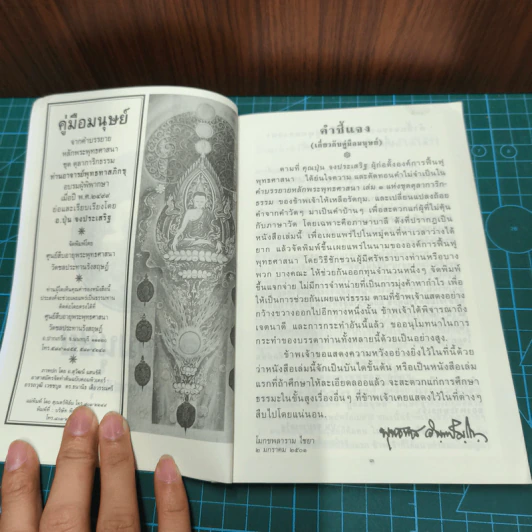 คู่มือมนุษย์
จากคำบรรยาย
หลักพระพุทธศาสนา
ชุด ตุลาการิกธรรม
ท่านอาจารย์พุทธทาสภิกขุ
อบรมผู้พิพากษา
เมื่อปี พ.ศ.๒๔๙๙
ย่อและเรียบเรียงโดย
อ.ปุ่น จงประเสริฐ
จัดพิมพ์โดย
ศูนย์สืบอายุพระพุทธศาสนา
วัดชลประทานรังสฤษฎ์
ศูนย์สืบอายุพระพุทธศาสนา
วัดชลประทานรังสฤษฎ์
คำชี้แจง
(เกี่ยวกับคู่มือมนุษย์)
ตามที่ คุณปุ่น จงประเสริฐ ผู้ก่อตั้งองค์การฟื้นฟู
พุทธศาสนา ได้ย่นความ และตัดทอนคำไม่จำเป็นใน
คำบรรยายหลักพระพุทธศาสนา เล่ม ๑ แห่งชุดตุลาการิก-
ธรรม ของข้าพเจ้าให้เหลือรัดกุม และเปลี่ยนแปลงถ้อย
คำจากคำวัดๆ มาเป็นคำบ้านๆ เพื่อสะดวกแก่ผู้ที่ไม่คุ้น
กับภาษาวัด โดยเฉพาะคือภาษาบาลี ดังที่ปรากฏเป็น
หนังสือเล่มนี้ เพื่อเผยแพร่ไปในหมู่คนที่หาเวลาว่างได้
ยาก แล้วจัดพิมพ์ขึ้นเผยแพร่ในนามขององค์การฟื้นฟู
พุทธศาสนา โดยวิธีชักชวนผู้มีศรัทธาบางท่านหรือบาง
พวก บางคณะ ให้ช่วยกันออกทุนจำนวนหนึ่งๆ จัดพิมพ์
ขึ้นแจกจ่าย ไม่มีการจำหน่ายที่เป็นการมุ่งค้าหากำไร เพื่อ
ให้เป็นการช่วยกันเผยแพร่ธรรม ตามที่ข้าพเจ้าแสดงอย่าง
กว้างขวางออกไปอีกทางหนึ่งนั้น ข้าพเจ้าได้พิจารณาถึง
เจตนาดี และการกระทำอันนี้แล้ว ขออนุโมทนาในการ
กระทำของบรรดาท่านทั้งหลายนี้ด้วยเป็นอย่างสูง.
ข้าพเจ้าขอแสดงความหวังอย่างยิ่งไว้ในที่นี้ด้วย
ว่าหนังสือเล่มนี้จักเป็นบันไดชั้นต้น หรือเป็นหนังสือเล่ม
แรกที่ถ้าศึกษาให้ละเอียดลออแล้ว จะสะดวกแก่การศึกษา
ธรรมะในขั้นสูงเรื่องอื่นๆ ที่ข้าพเจ้าเคยแสดงไว้ในที่ต่างๆ
สืบไปโดยแน่นอน.
โมกขพลาราม ไชยา
๒ มกราคม ๒๕๐๑